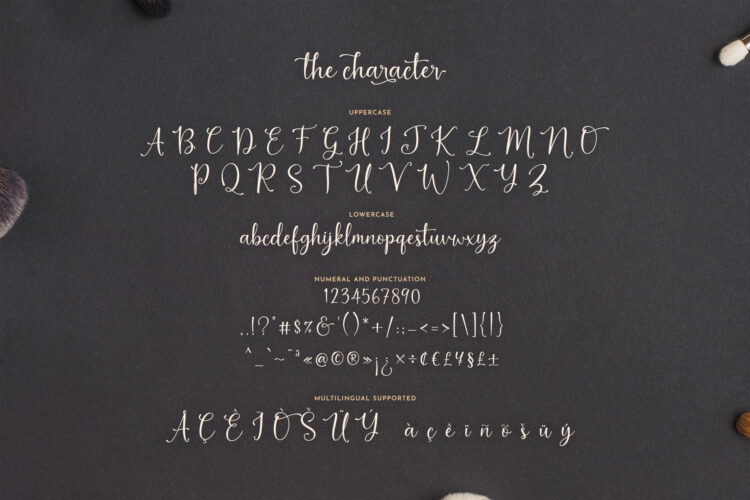 the character
UPPERCASE
A B C D E F G H I J K L M N O
P Q R S T U V W X Y Z
LOWERCASE
abcdefghijklmnopqrstuvwxyz
NUMERAL AND PUNCTUATION
1234567890
,.!?"#$%&'()*+/:;_<=>[\]{|}
^_`~¨ª«@©®»¡¿×÷¢€£¥§£±
MULTILINGUAL SUPPORTED
À Ç Ê Ī Ò Š Ü Ý à ç ê ī ñ õ š ü ý